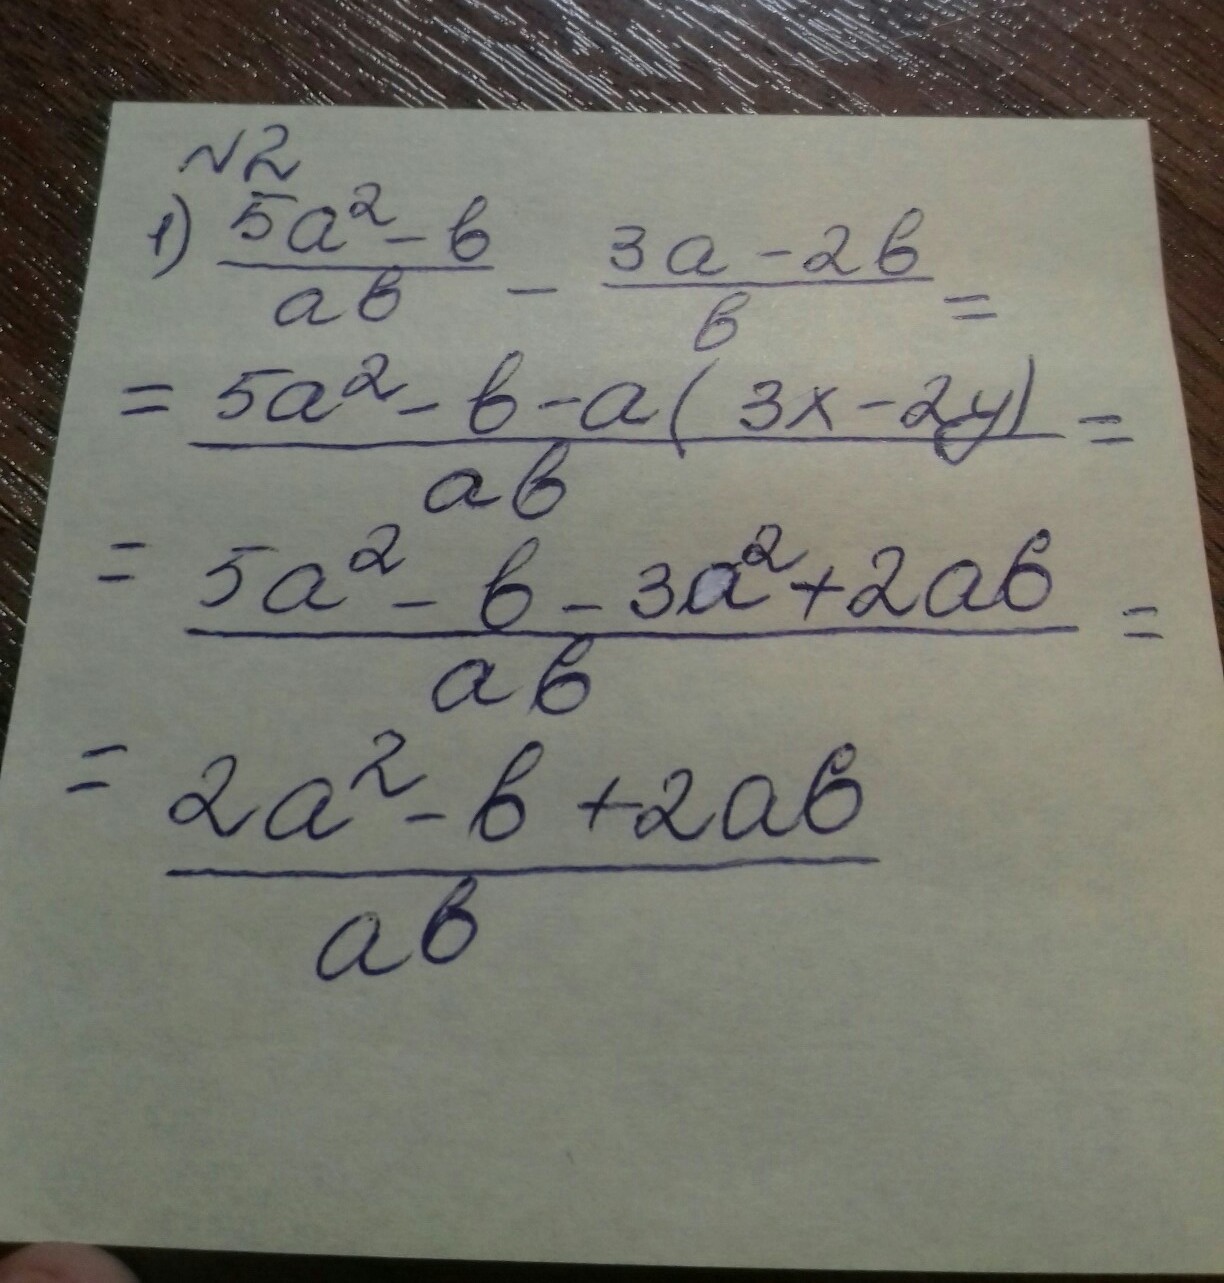 №2
1) (5a² - b)/(ab) - (3a - 2b)/b =
= (5a² - b - a(3x - 2y))/(ab) =
= (5a² - b - 3a² + 2ab)/(ab) =
= (2a² - b + 2ab)/(ab)